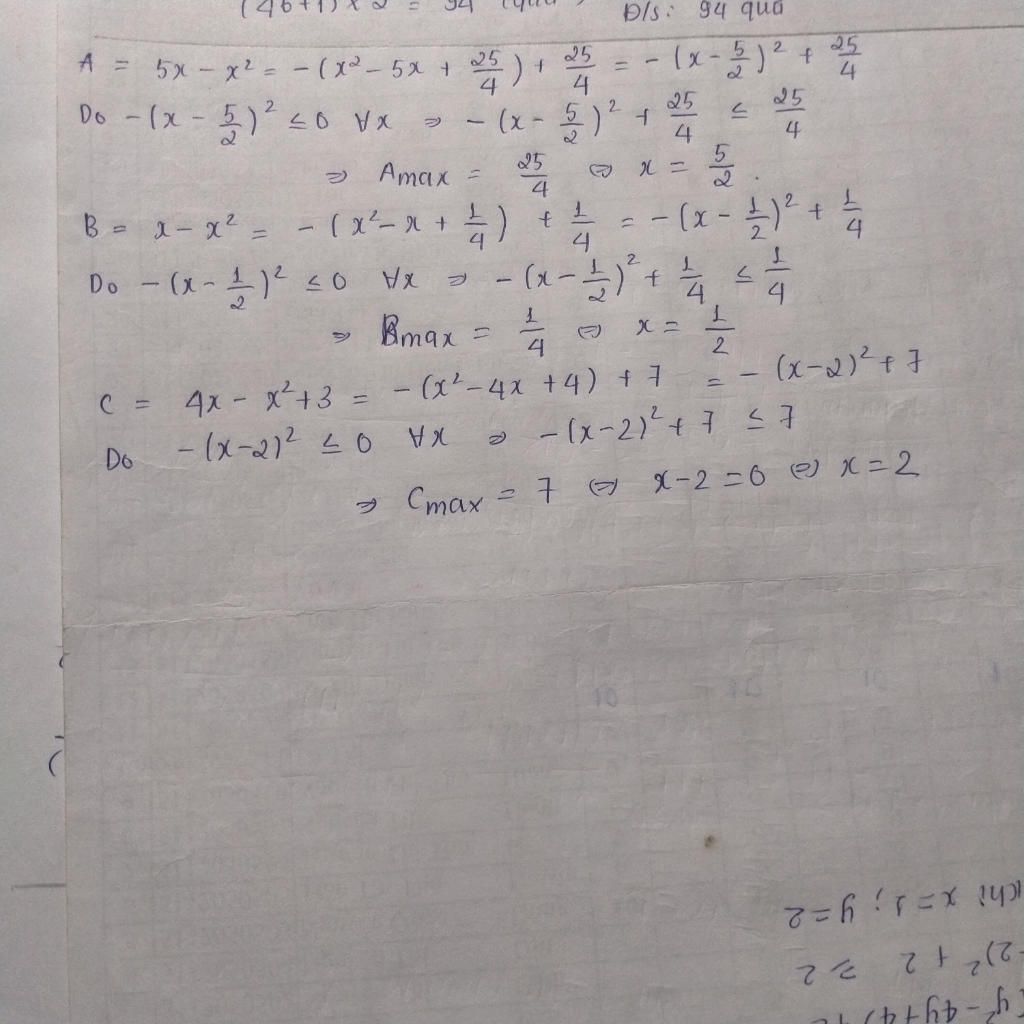 (46+1) x 2 = 94 (quả)
Đ/s: 94 quả
A = 5x - x² = -(x² - 5x + 25/4) + 25/4 = -(x - 5/2)² + 25/4
Do -(x - 5/2)² ≤ 0 ∀x ⇒ -(x - 5/2)² + 25/4 ≤ 25/4
⇒ Amax = 25/4 ⇔ x = 5/2.
B = x - x² = -(x² - x + 1/4) + 1/4 = -(x - 1/2)² + 1/4
Do -(x - 1/2)² ≤ 0 ∀x ⇒ -(x - 1/2)² + 1/4 ≤ 1/4
⇒ Bmax = 1/4 ⇔ x = 1/2
C = 4x - x² + 3 = -(x² - 4x + 4) + 7 = -(x-2)² + 7
Do -(x-2)² ≤ 0 ∀x ⇒ -(x-2)² + 7 ≤ 7
⇒ Cmax = 7 ⇔ x-2 = 0 ⇔ x = 2
y² - 4y + 4) +
2)² + 2 ≥ 2
khi x = 1; y = 2